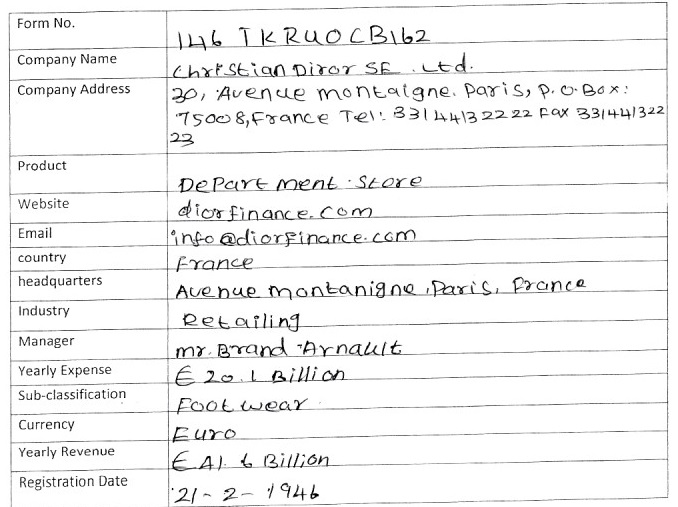 Form No. 146 TKRUOCB162
Company Name Christian Diror SE. Ltd.
Company Address 30, Avenue montaigne. Paris, P.O.Box:
75008, France Tel: 33144132222 Fax 331441322
23
Product Department Store
Website diorfinance.com
Email info@diorfinance.com
country France
headquarters Avenue montanigne, Paris, France
Industry Retailing
Manager mr. Brand Arnault
Yearly Expense € 20.1 Billion
Sub-classification Footwear
Currency Euro
Yearly Revenue € 41.6 Billion
Registration Date 21-2-1946